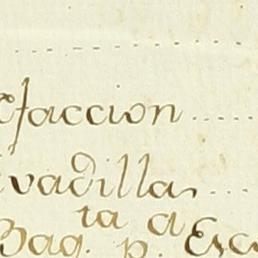 efaccion
vadillas
ta a
Bag. p. Esc